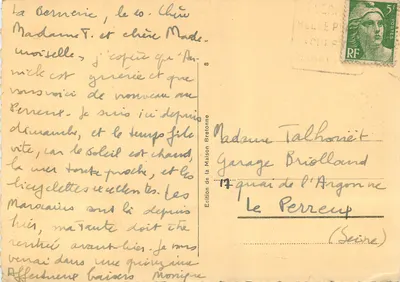 La Bernerie, le 10. Chère
Madame T. et chère Made-
moiselle, j'espère que
est guérie et que
vous voici de nouveau au
Perreux. Je suis ici depuis
dimanche, et le temps file
vite, car le soleil est chaud,
la mer toute proche, et les
bicyclettes excellentes. Les
Marocains sont là depuis
hier, ma tante doit être
rentrée avant-hier. Je vous
verrai dans une quinzaine
Affectueux baisers Monique
8
Edition de la Maison Bretonne
5F
RF
Madame Talhouët
Garage Briolland
17 quai de l'Argonne
Le Perreux
(Seine)